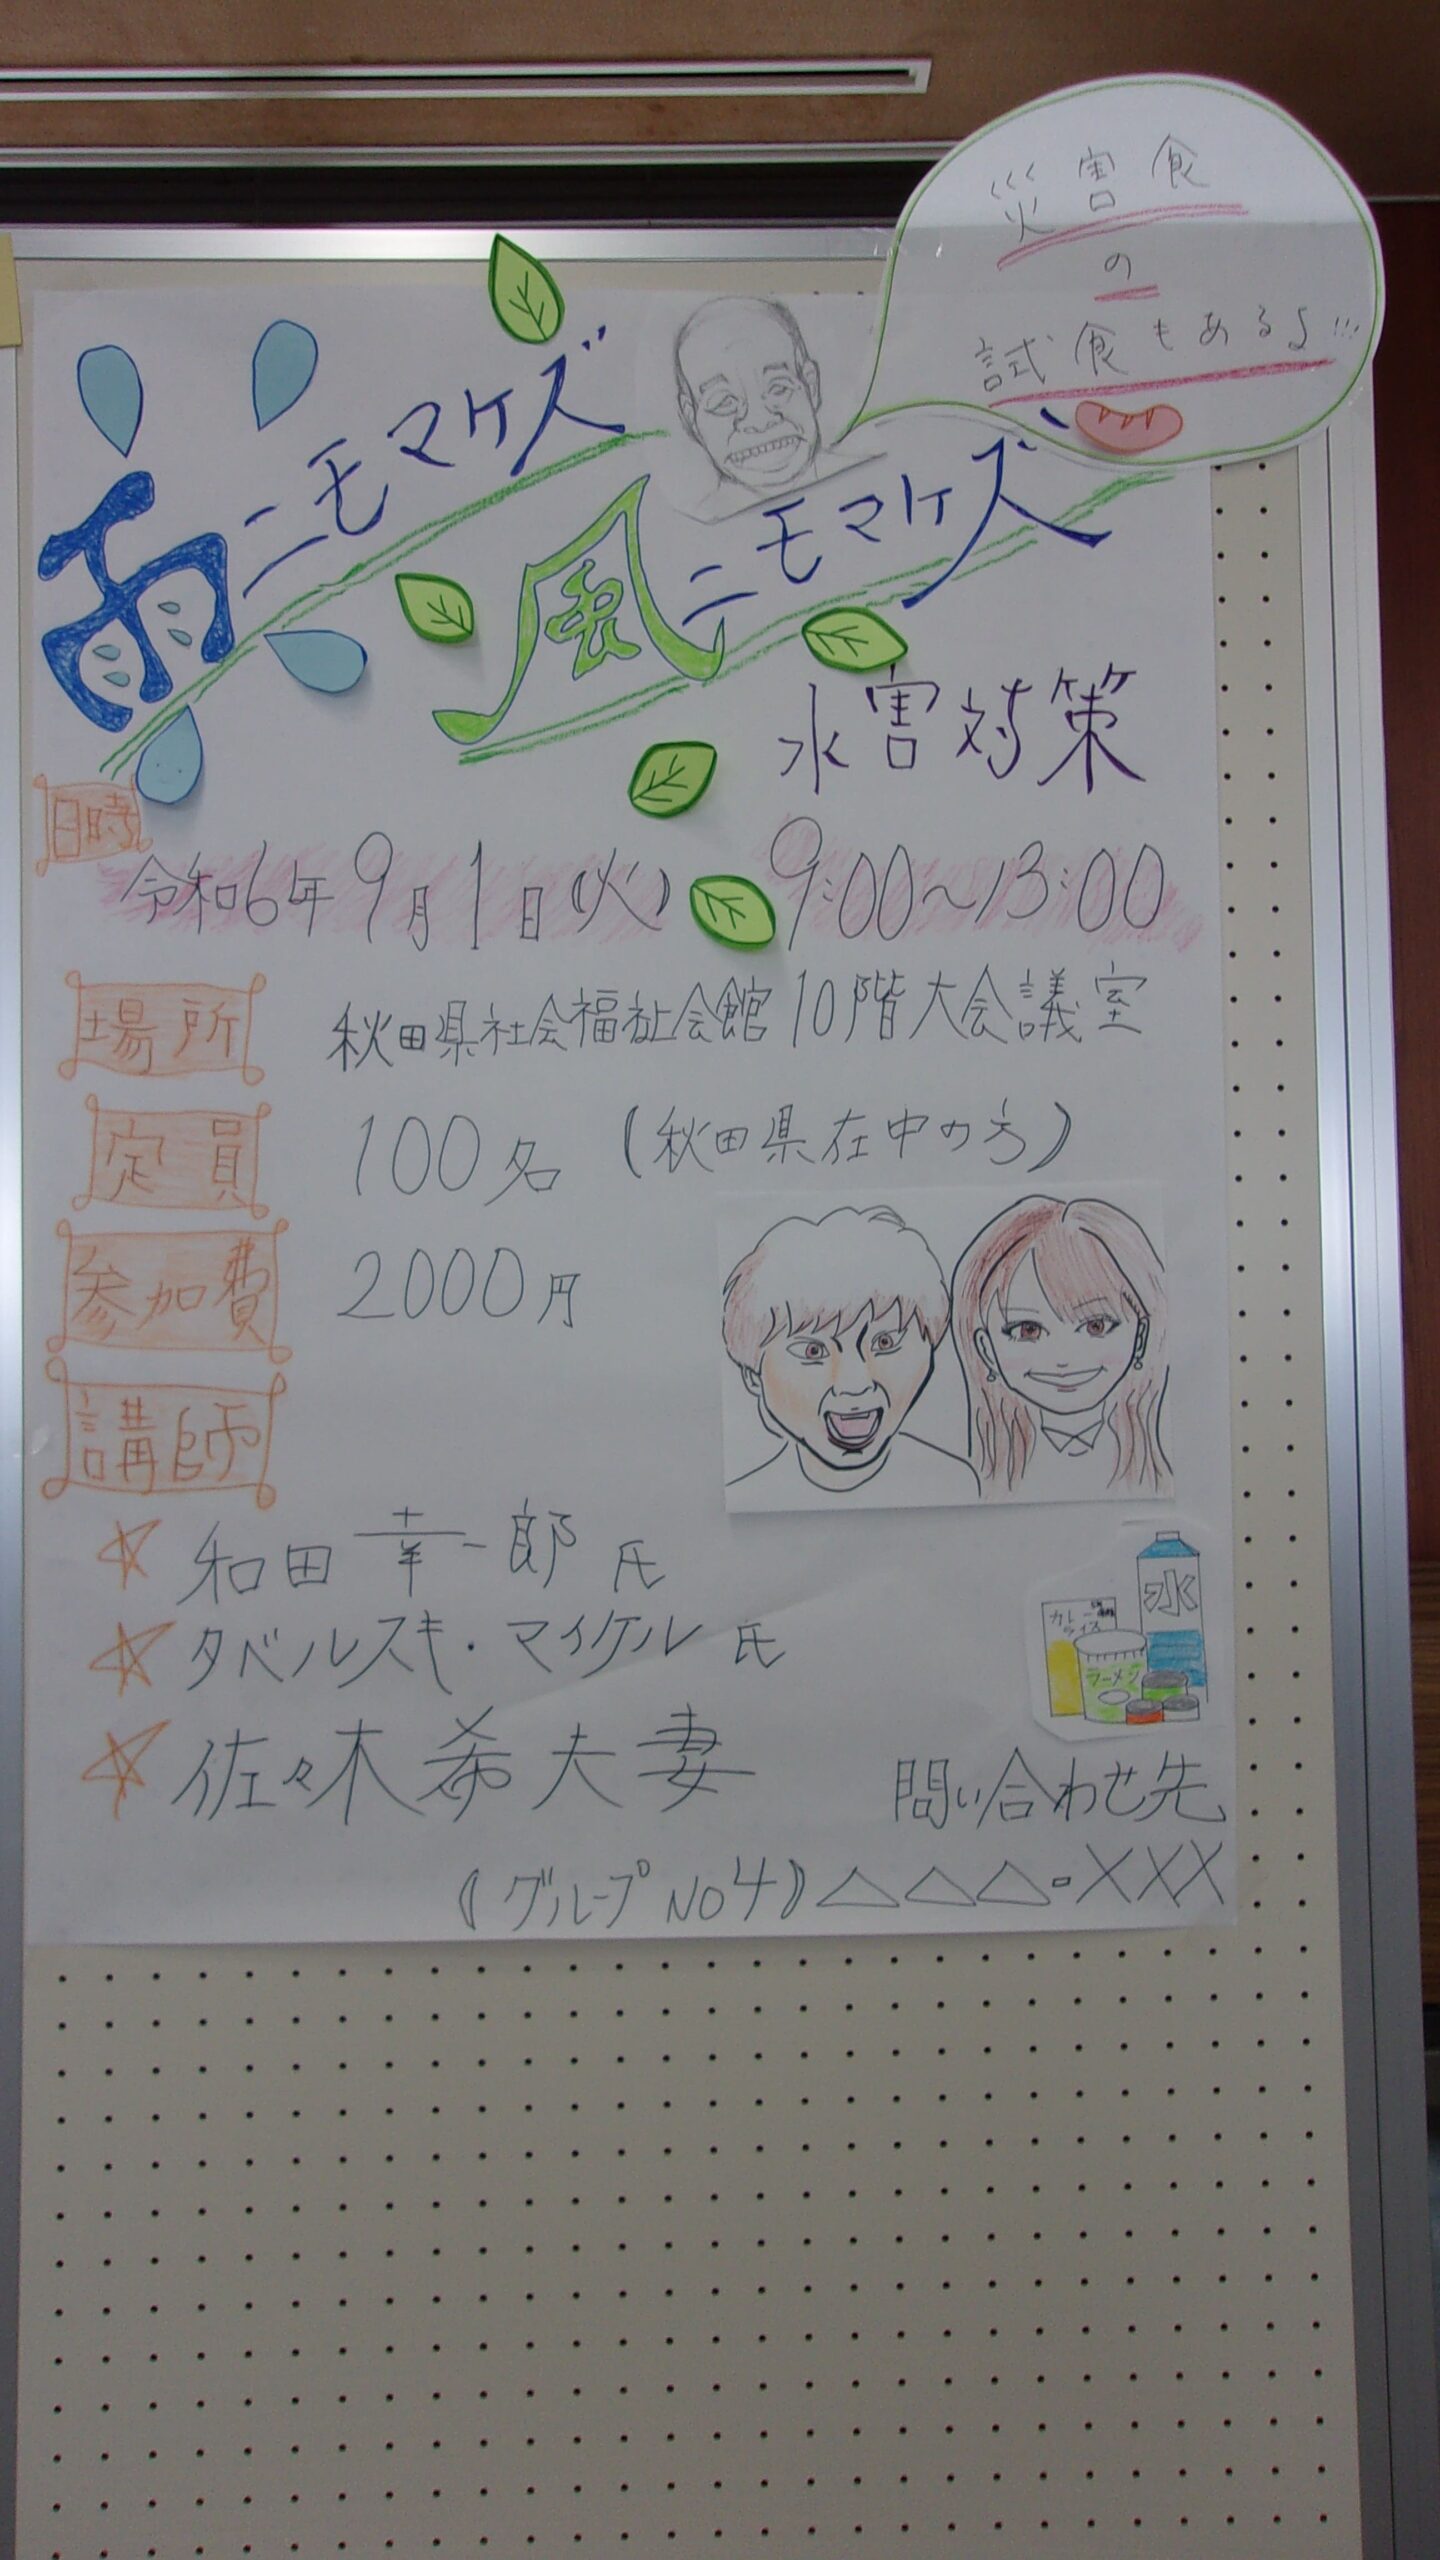 災害食
の
試食もあるよ!!!
雨ニモマケズ
風ニモマケズ
水害対策
日時
令和6年9月1日(火) 9:00～13:00
場所 秋田県社会福祉会館10階大会議室
定員 100名 (秋田県在中の方)
参加費 2000円
講師
☆ 和田幸一郎 氏
☆ タベルスキ・マイケル 氏
☆ 佐々木希夫妻
水
ラーメン
問い合わせ先
(グループNO4) △△△-×××